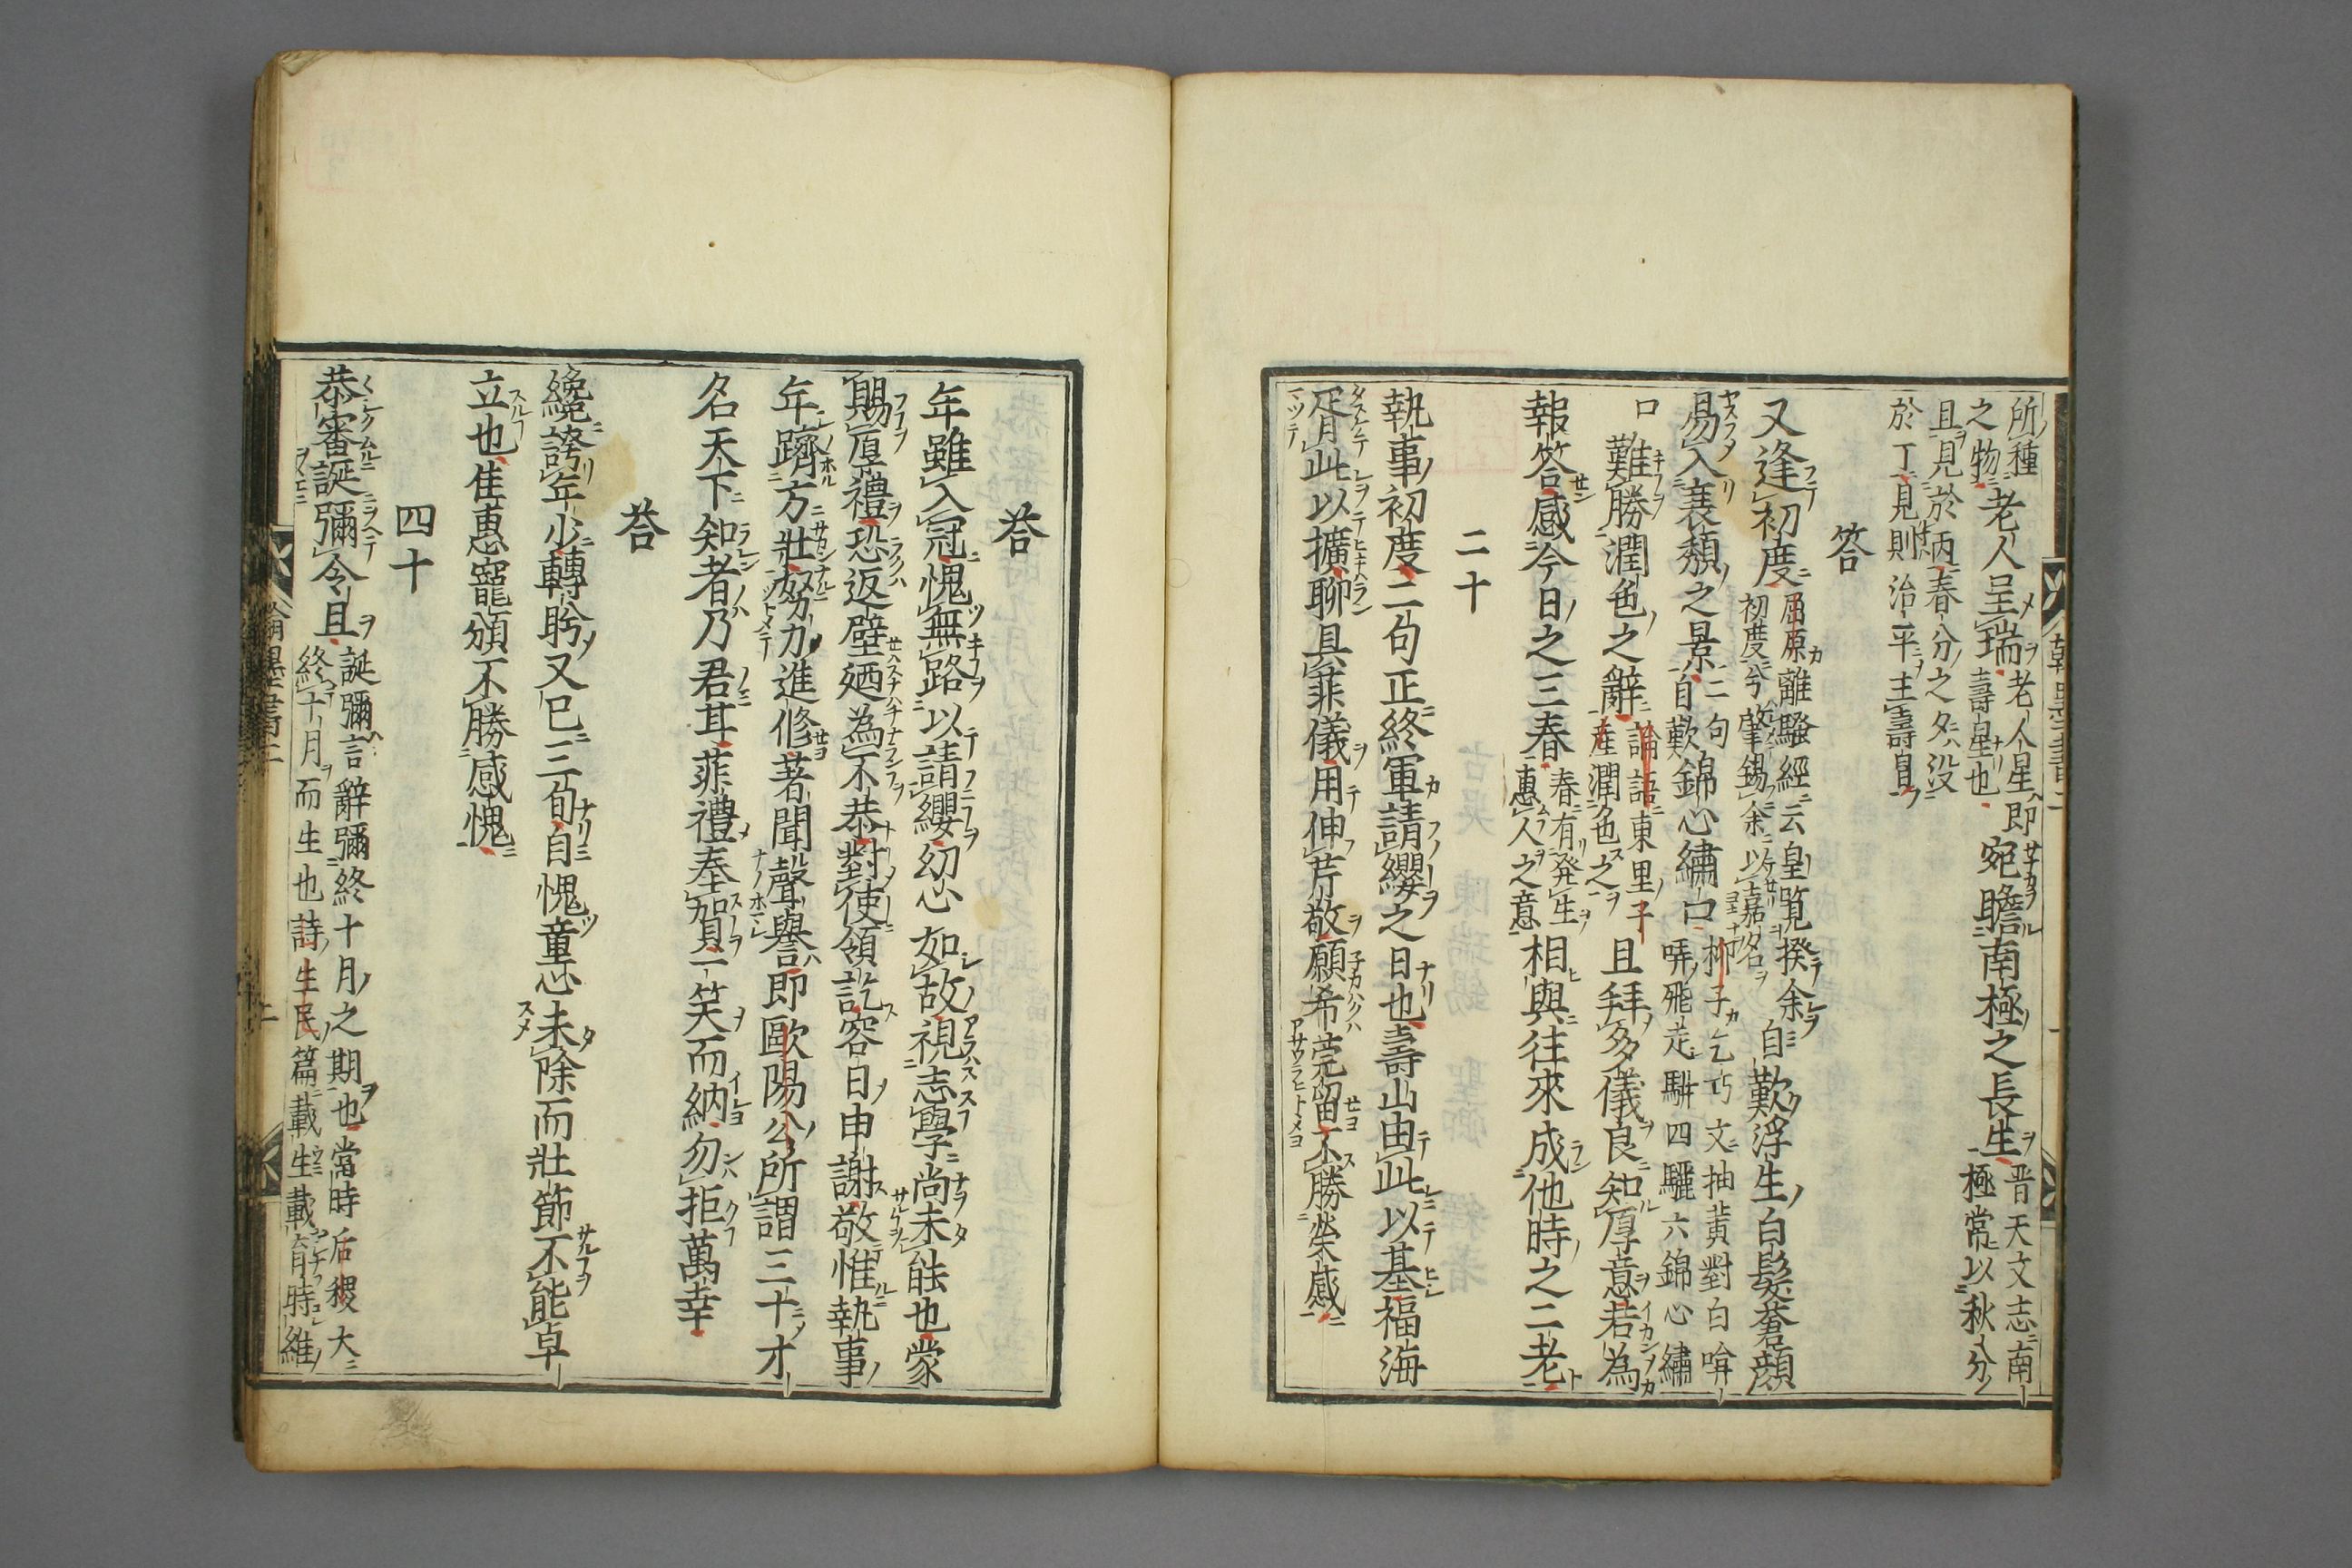 所種
之物
老人呈瑞
老人星即
壽星也
宛瞻南極之長生
晋天文志南
極常以秋分
且見於丙春分之夕没
於丁見則治平主壽昌
答
又逢初度
屈原離騷經云皇覽揆余
初度兮肇錫余以嘉名
自歎浮生白髮蒼顔
易入衰頽之景
二句
自歎
錦心繡口
柳子乞巧文抽黄對白啽
哢飛走駢四驪六錦心繡
口
難勝潤色之辭
論語東里子
産潤色之
且拜多儀良知厚意若為
報答感今日之三春
春有発生
惠人之意
相與往來成他時之二老
二十
執事初度二句正終軍請纓之日也壽山由此以基福海
胥此以擴聊具菲儀用伸芹敬願希莞留不勝榮感
答
年雖入冠愧無路以請纓幼心如故視志學尚未能也蒙
賜厚禮恐返璧廼為不恭對使領訖容日申謝敬惟執事
年躋方壯努力進修著聞聲譽即歐陽公所謂三十才
名天下知者乃君耳菲禮奉賀一笑而納勿拒萬幸
答
纔誇年少轉盻又已三旬自愧童心未除而壯節不能卓
立也隹惠寵頒不勝感愧
四十
恭審誕彌令旦
誕彌言辭彌終十月之期也當時后稷大
終十月而生也詩生民篇載生載育時維